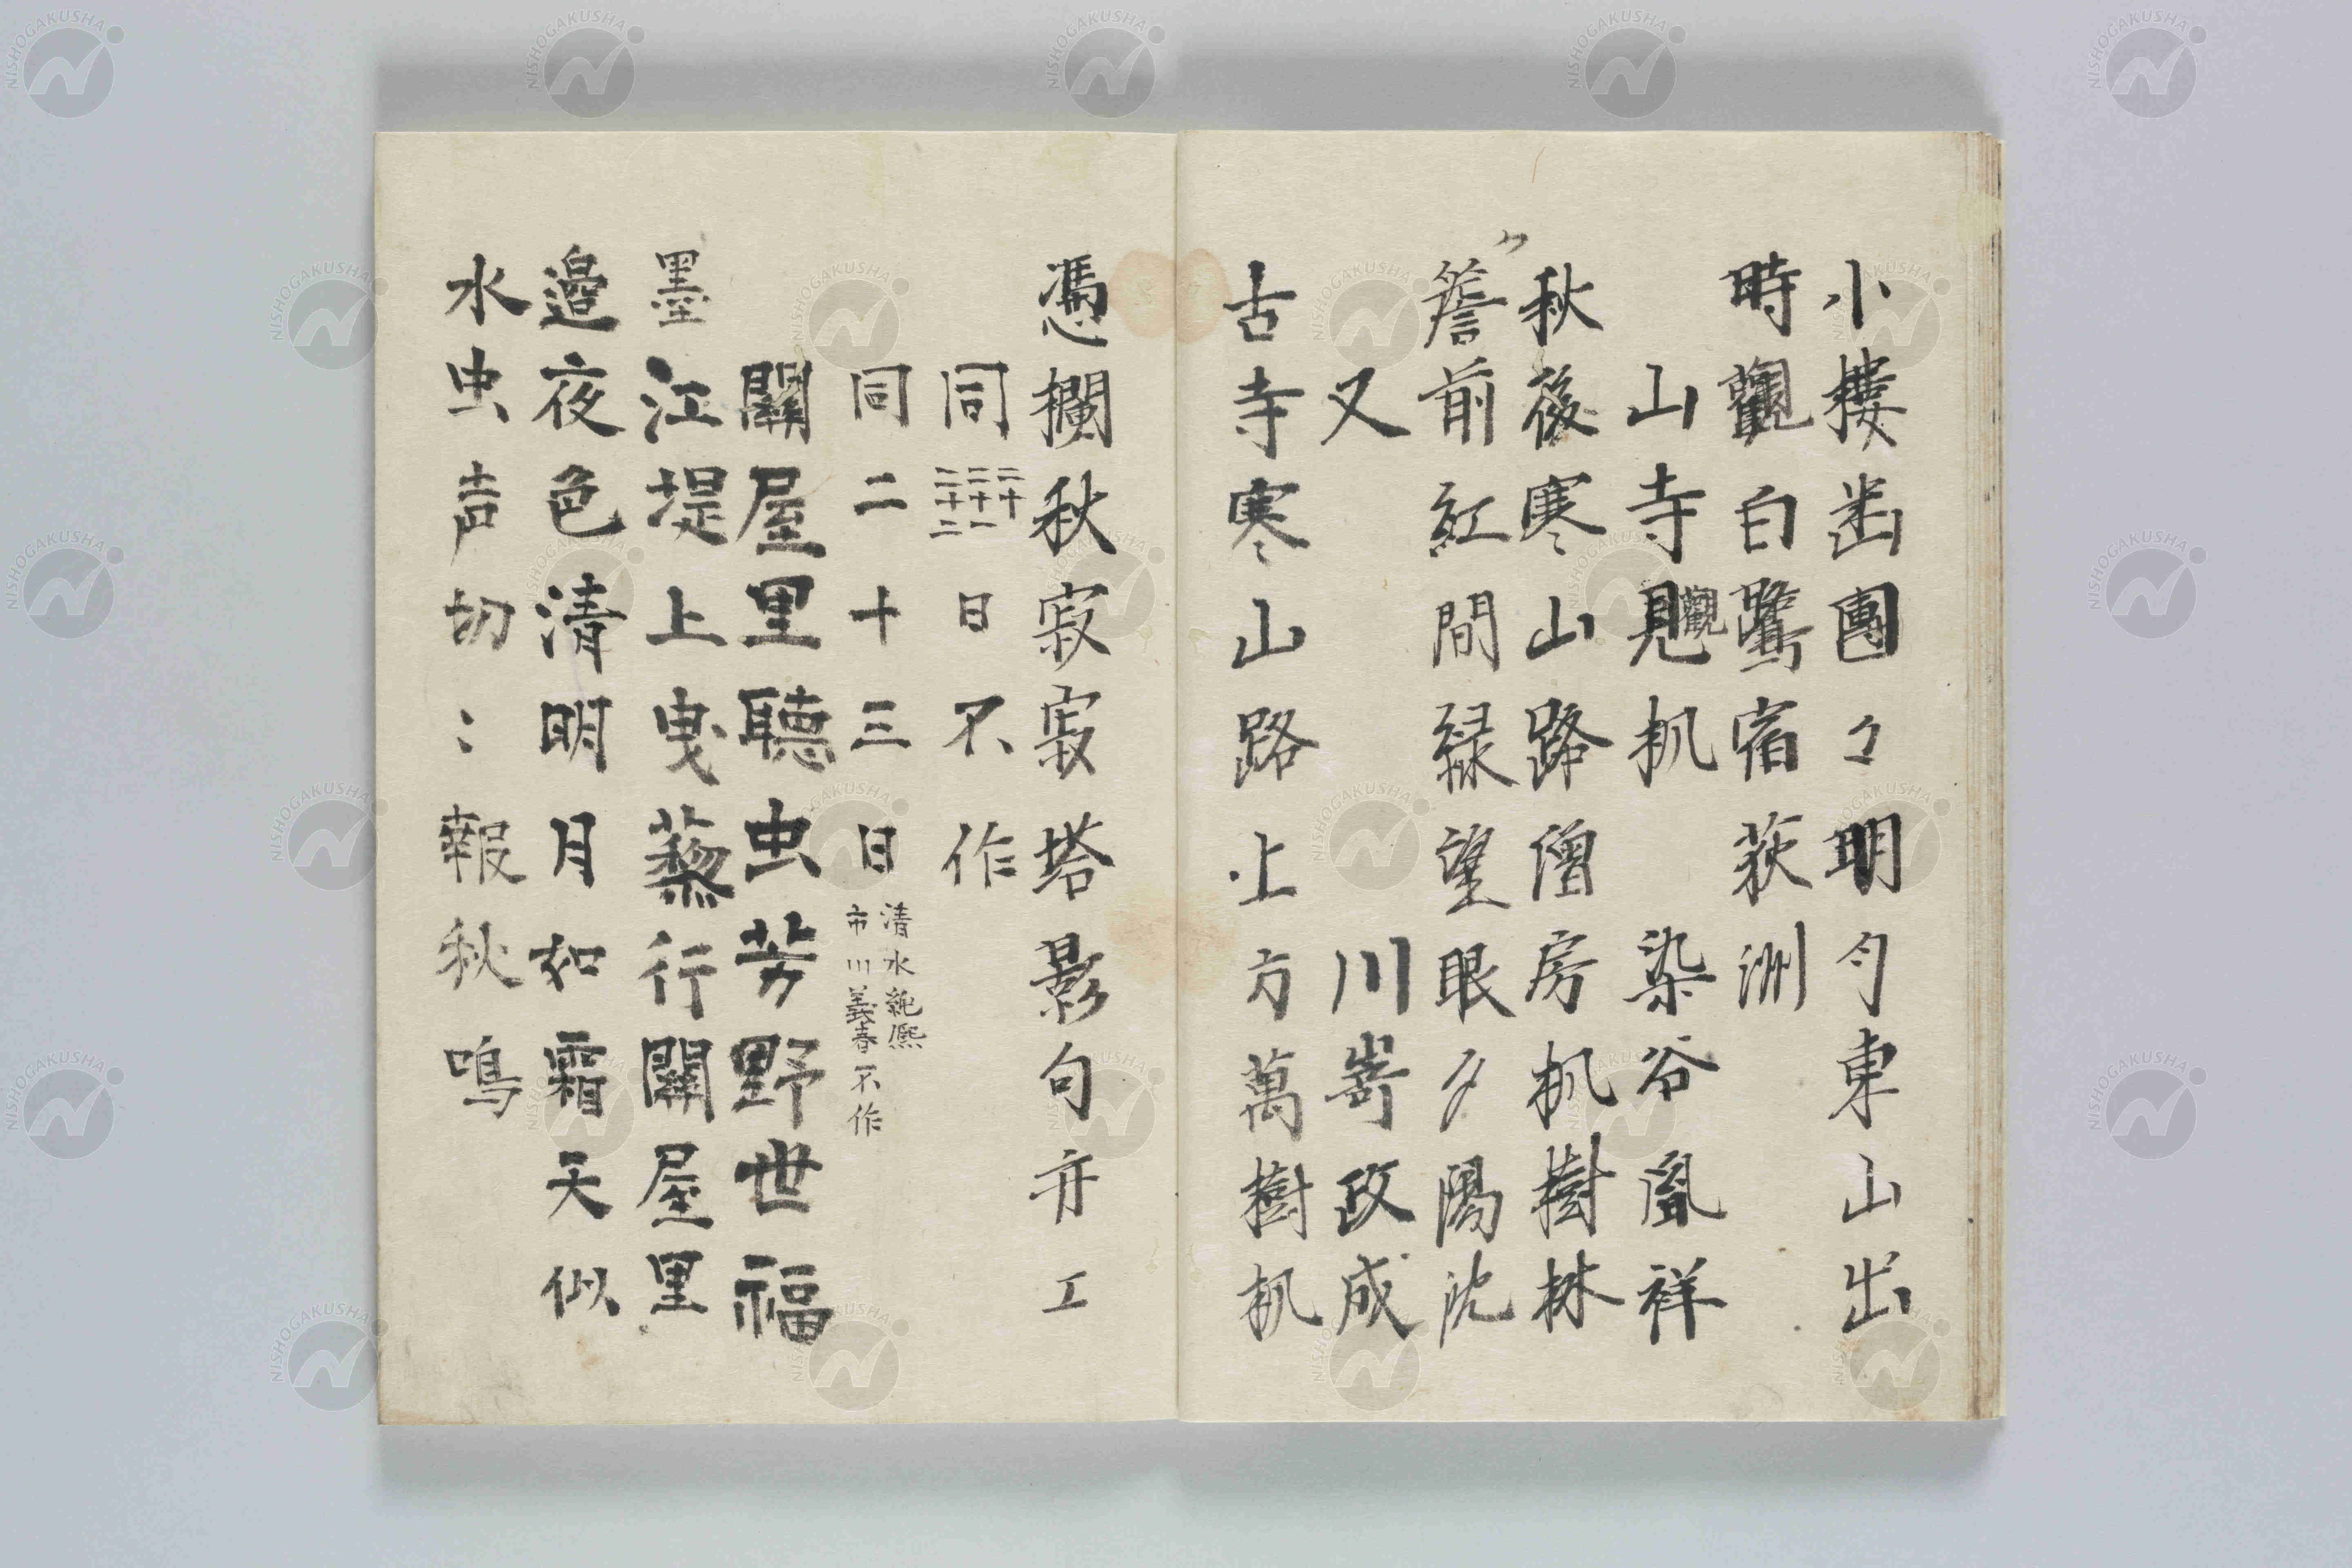 小樓𡴭團々明匀東山出
時觀白鷺宿荻洲
山寺見觀楓 染谷胤祥
秋後寒山路僧房楓樹林
簷前紅間緑望眼夕陽沈
又 川嵜政成
古寺寒山路上方萬樹楓
憑欄秋寂寂塔影句亦工
同二十二十一二十二日不作
同二十三日清水純熈市川義春不作
關屋里聽虫 芳野世福
墨江堤上曳藜行關屋里
邉夜色清明月如霜天似
水虫声切〻報秋鳴